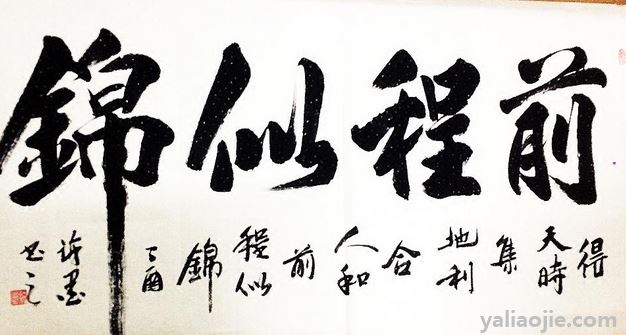 前程似錦
得天時集地利合人和前程似錦
丁酉
yaliaojie.com